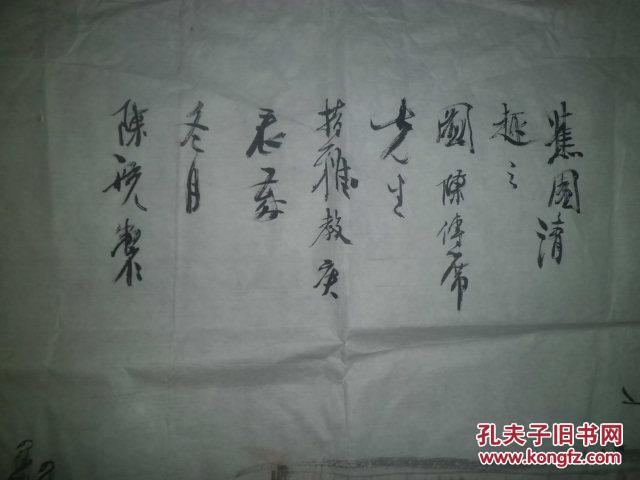 蕉園清
趣之
圖陳傳席
先生
揩雅教庚
辰冬
冬月
陳硯製
孔夫子旧书网
www.kongfz.com